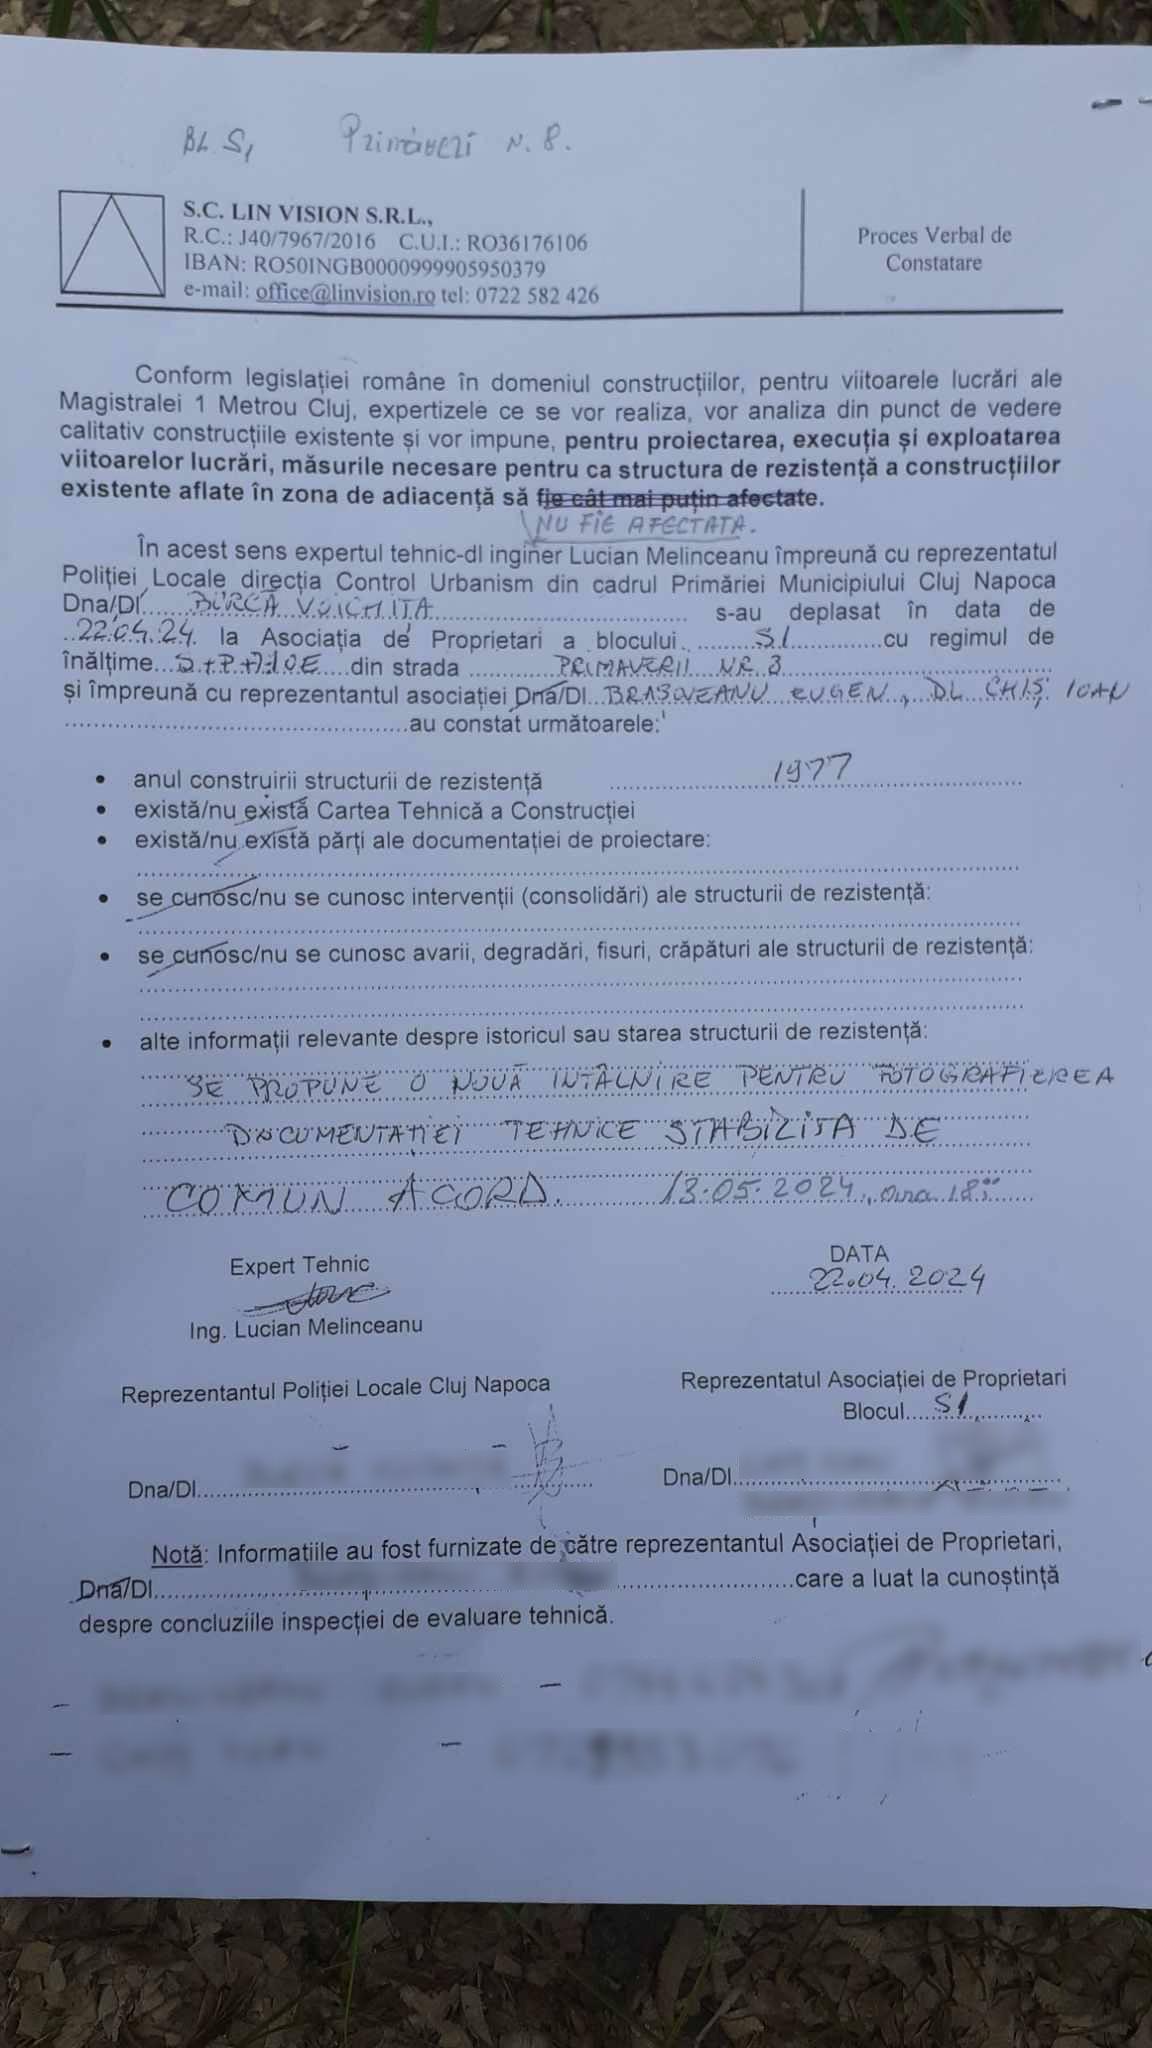 BL. S1 Primăverii N. 8.
S.C. LIN VISION S.R.L.,
R.C.: J40/7967/2016 C.U.I.: RO36176106
IBAN: RO50INGB0000999905950379
e-mail: office@linvision.ro tel: 0722 582 426
Proces Verbal de
Constatare
Conform legislației române în domeniul construcțiilor, pentru viitoarele lucrări ale
Magistralei 1 Metrou Cluj, expertizele ce se vor realiza, vor analiza din punct de vedere
calitativ construcțiile existente și vor impune, pentru proiectarea, execuția și exploatarea
viitoarelor lucrări, măsurile necesare pentru ca structura de rezistență a construcțiilor
existente aflate în zona de adiacență să fie cât mai puțin afectate.
NU FIE AFECTATA.
În acest sens expertul tehnic-dl inginer Lucian Melinceanu împreună cu reprezentatul
Poliției Locale direcția Control Urbanism din cadrul Primăriei Municipiului Cluj Napoca
Dna/Dl. BÎRCĂ VOICHIȚA s-au deplasat în data de
22.04.24. la Asociația de Proprietari a blocului S1 cu regimul de
înălțime S+P+10E din strada PRIMAVERII NR. 8
și împreună cu reprezentantul asociației Dna/Dl. BRASOVEANU EUGEN, DL CHIȘ IOAN
au constat următoarele:
• anul construirii structurii de rezistență 1977
• există/nu există Cartea Tehnică a Construcției
• există/nu există părți ale documentației de proiectare:
• se cunosc/nu se cunosc intervenții (consolidări) ale structurii de rezistență:
• se cunosc/nu se cunosc avarii, degradări, fisuri, crăpături ale structurii de rezistență:
• alte informații relevante despre istoricul sau starea structurii de rezistență:
SE PROPUNE O NOUĂ INTÂLNIRE PENTRU FOTOGRAFIEREA
DOCUMENTAȚIEI TEHNICE STABILITA DE
COMUN ACORD. 13.05.2024, ora 18⁰⁰
Expert Tehnic
Ing. Lucian Melinceanu
DATA
22.04.2024
Reprezentantul Poliției Locale Cluj Napoca
Dna/Dl.
Reprezentatul Asociației de Proprietari
Blocul S1
Dna/Dl.
Notă: Informațiile au fost furnizate de către reprezentantul Asociației de Proprietari,
Dna/Dl. care a luat la cunoștință
despre concluziile inspecției de evaluare tehnică.